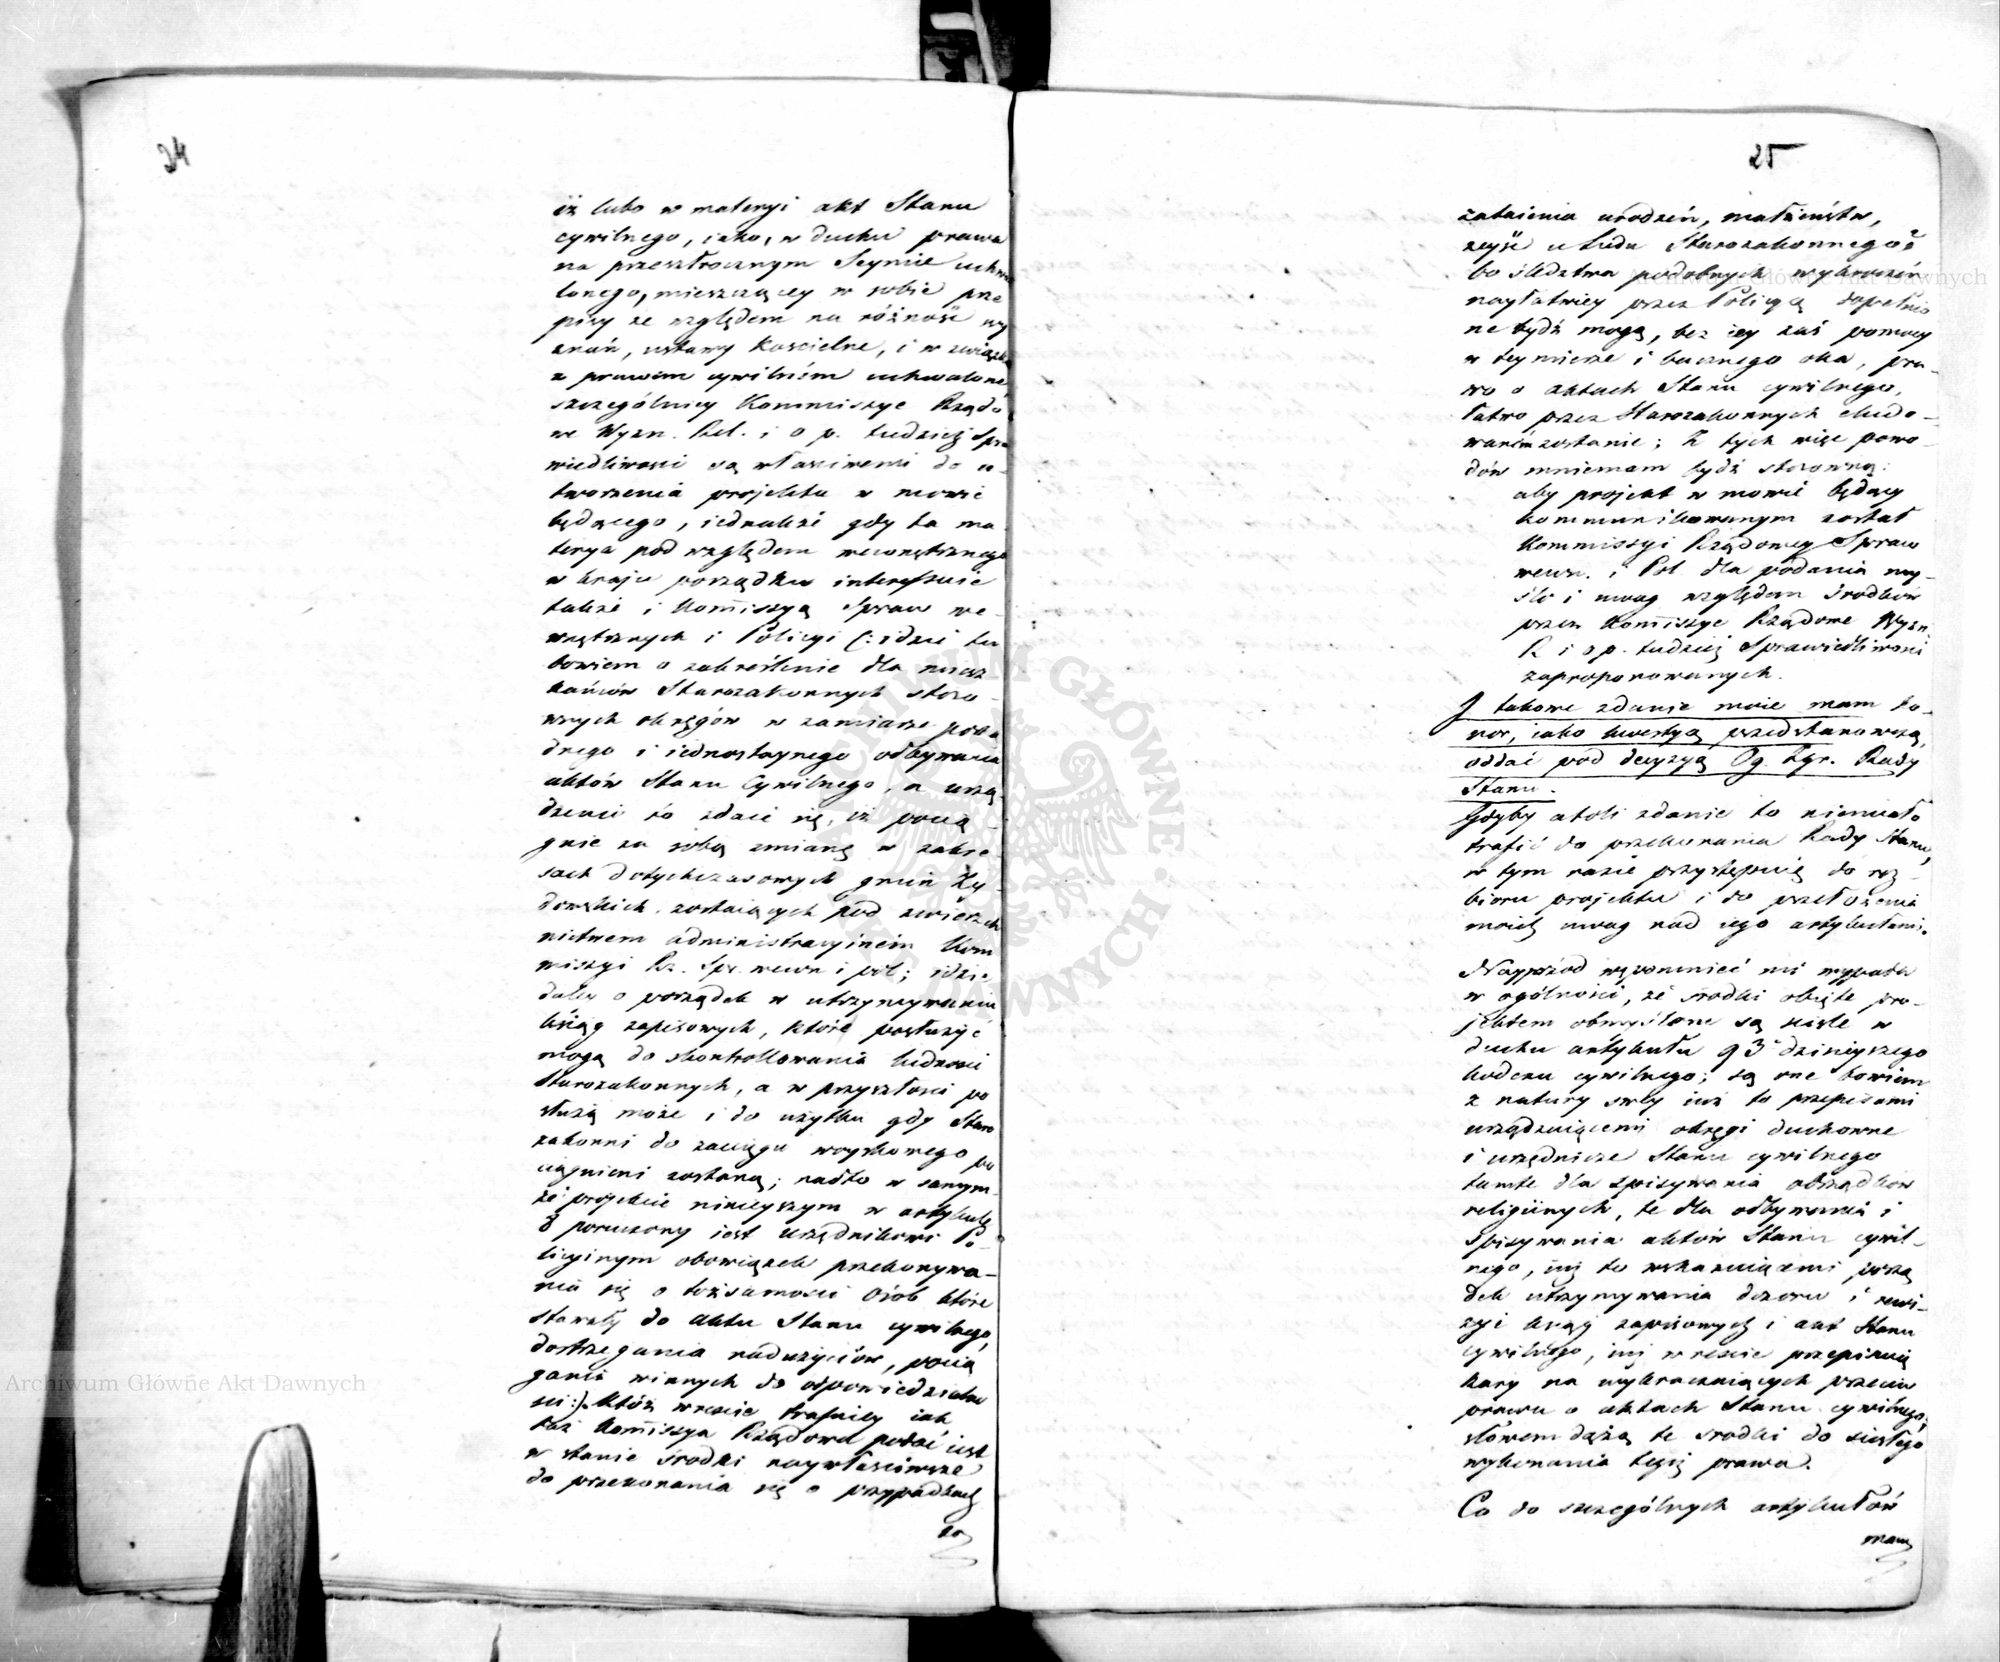 24
iż lubo w materyi akt Stanu
cywilnego, iako, w duchu prawa
na przeszłrocznym Seymie uchwa
lonego, mieszczącey w sobie prze
pisy ze względem na różność wy
znań, ustawy kościelne, i w związku
z prawem cywilném uchwalone
szczególniey Kommissye Rządo
we Wyzn. Rel. i O. p. tudzież Spra
wiedliwości są właściwemi do u-
tworzenia projektu w mowie
będącego, iednakże gdy ta ma
terya pod względem wewnętrznego
w kraju porządku interessuie
także i Kom̄issyą Spraw we-
wnętrznych i Policyi (: idzie tu
bowiem o zakreślenie dla miesz
kańców Starozakonnych stoso-
wnych okręgów w zamiarze porzą
dnego i iednostaynego odbywania
aktów Stanu Cywilnego, a urzą-
dzenie to zdaie się, iż pocią-
gnie za sobą zmianę w zakre-
sach dotychczasowych gmin Ży-
dowskich zostaiących pod zwierzch
nictwem administracyiném Kom
missyi Rz. Spr. wewn i pol; idzie
daley o porządek w utrzymywaniu
ksiąg zapisowych, które posłużyć
mogą do skontrollowania ludności
Starozakonnych, a w przyszłości po
służą może i do użytku gdy Staro
zakonni do zaciągu woyskowego po
ciągnieni zostaną; nadto w samym-
że projekcie ninieyszym w artykule
8 poruczony iest urzędnikowi Po-
licyinym obowiązek przekonywa-
nia się o tożsamości Osób które
stawały do aktu Stanu cywilnego,
dostrzegania nadużyciów, pocią
gania winnych do odpowiedzialno
ści :). Któż wreście trafniey iak
taż Kom̄issya Rządowa podać iest
w stanie środki naywłaściwsze
do przekonania się o przypadkach
za
25
zataienia urodzeń, małżeństw,
zeyść u ludu Starozakonnego?
bo śledztwa podobnych wykroczeń
nayłatwiey przez Policyą dopełnio
ne bydź mogą, bez iey zaś pomocy
w tey mierze i bacznego oka, pra-
wo o aktach Stanu cywilnego,
łatwo przez Starozakonnych eludo-
waném zostanie; Z tych więc powo-
dów mniemam bydź stosowną:
aby projekt w mowie będący
kommunikowanym został
Kommissyi Rządowey Spraw
wewn. i Pol. dla podania my-
śli i uwag względem środków
przez Kom̄issye Rządowe Wyzn.
R. i o p. tudzież Sprawiedliwości
zaproponowanych.
I takowe zdanie moie mam ho-
nor, iako kwestyą przedstanowczą,
oddać pod decyzyą Og. Zgr. Rady
Stanu.
Gdyby atoli zdanie to niemiało
trafić do przekonania Rady Stanu,
w tym razie przystępuię do roz-
bioru projektu i do przełożenia
moich uwag nad iego artykułami.
Nayprzód wspomnieć mi wypada
w ogólności, że środki obięte pro-
jektem obmyślone są ściśle w
duchu artykułu 93 dzisieyszego
kodexu cywilnego; są one bowiem
z natury swéy iuż to przepisami
urządzaiącemi okręgi duchowne
i urzędnicze Stanu cywilnego
tamte dla spisywania obrządków
religiinych, te dla odbywania i
spisywania aktów Stanu cywil-
nego, iuż to wskazuiącemi porzą
dek utrzymywania dozoru i rewi-
zyi ksiąg zapisowych i akt Stanu
cywilnego, iuż wreście przepisuią
kary na wykraczaiących przeciw
prawu o aktach Stanu cywilnego,
słowem dążą te środki do ścisłego
wykonania tegoż prawa.
Co do szczególnych artykułów
mam
Archiwum Główne Akt Dawnych
Archiwum Główne Akt Dawnych
ARCHIWUM GŁÓWNE AKT DAWNYCH